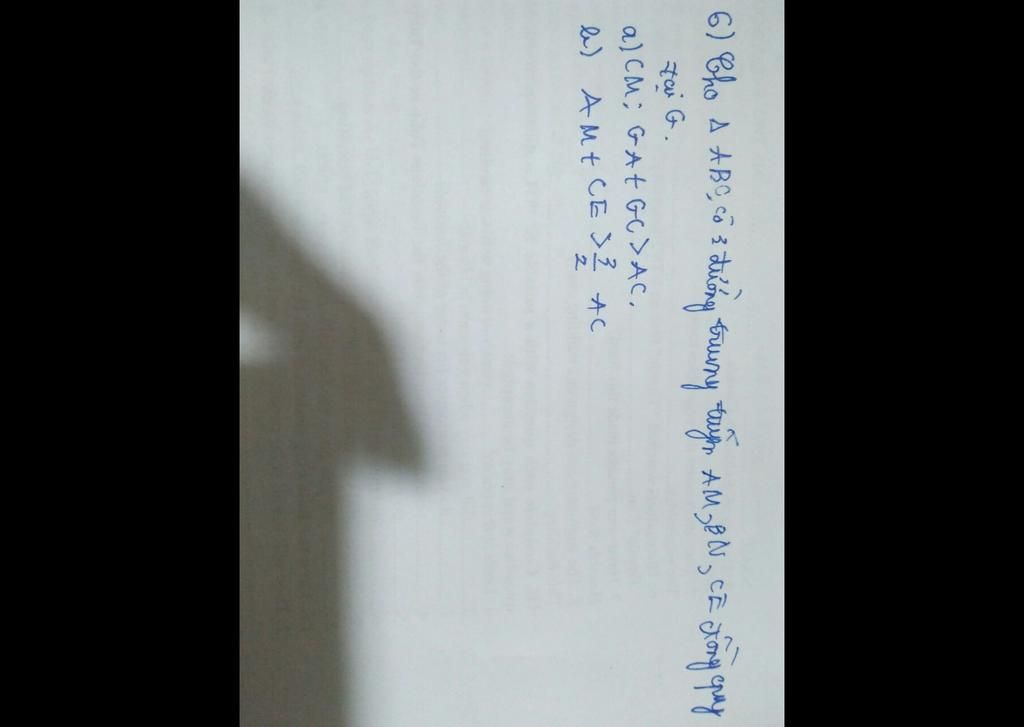 6) Cho Δ ABC, có 3 đường trung tuyến AM, BN, CE đồng quy
tại G.
a) CM: GA + GC > AC.
b) AM + CE > 3/2 AC